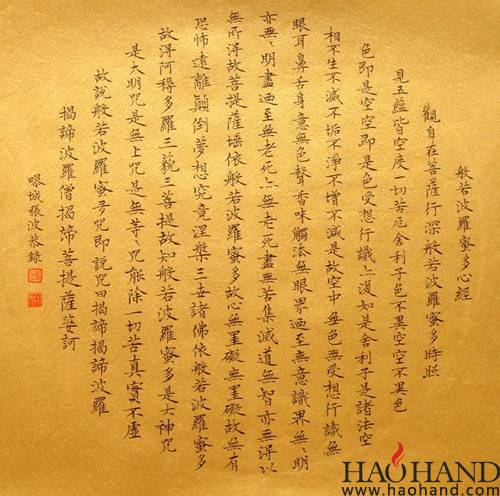 般若波羅蜜多心經
觀自在菩薩行深般若波羅蜜多時照
見五蘊皆空度一切苦厄舍利子色不異空空不異色
色即是空空即是色受想行識亦復如是舍利子是諸法空
相不生不滅不垢不淨不增不減是故空中無色無受想行識無
眼耳鼻舌身意無色聲香味觸法無眼界迺至無意識界無〻明
亦無〻明盡迺至無老死亦無老死盡無苦集滅道無智亦無得以
無所得故菩提薩埵依般若波羅蜜多故心無罣礙無罣礙故無有
恐怖遠離顛倒夢想究竟涅槃三世諸佛依般若波羅蜜多
故得阿耨多羅三藐三菩提故知般若波羅蜜多是大神咒
是大明咒是無上咒是無等〻咒能除一切苦真實不虛
故說般若波羅蜜多咒即說咒曰揭諦揭諦波羅
揭諦波羅僧揭諦菩提薩婆訶
城張波恭錄
HAOHAND
www.haohand.com